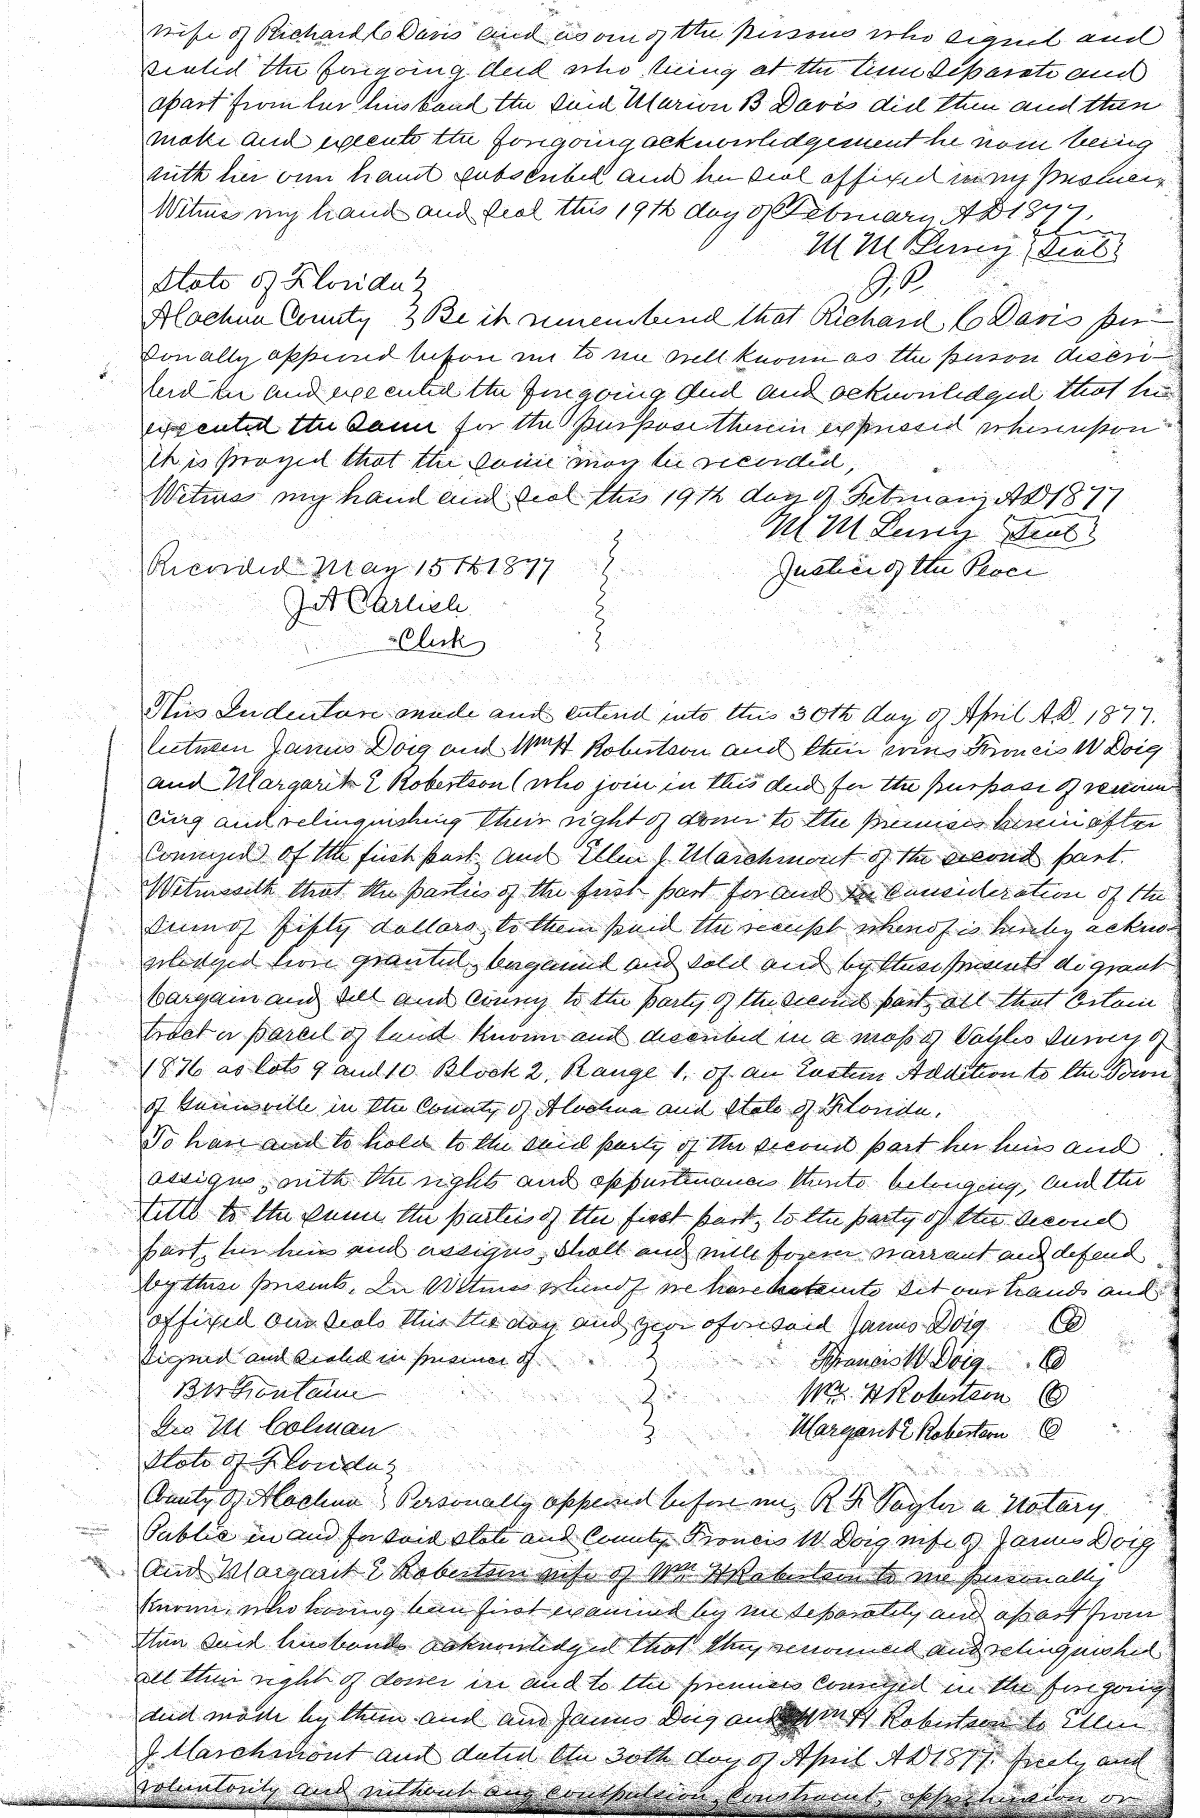 wife of Richard C Davis and as one of the persons who signed and
sealed the foregoing deed who being at the time separate and
apart from her husband the said Marion B Davis did then and there
make and execute the foregoing acknowledgement he name being
with her own hand subscribed and her seal affixed in my presence
Witness my hand and seal this 19th day of February AD 1877.
M M (Seal)
J. P.
State of Florida }
Alachua County } Be it remembered that Richard C Davis per-
sonally appeared before me to me well known as the person discri-
bed in and executed the foregoing deed and acknowledged that he
executed the same for the purpose therein expressed whereupon
it is prayed that the same may be recorded,
Witness my hand and seal this 19th day of February AD 1877
M M (Seal)
Recorded May 15th 1877
Justice of the Peace
J A Carlisle
Clerk
This Indenture made and entered into this 30th day of April A.D. 1877.
between James Doig and Wm H Robertson and their wives Francis W Doig
and Margaret E Robertson (who join in this deed for the purpose of renoun-
cing and relinquishing their right of dower to the premises herein after
conveyed) of the first part, and Ellen J. Marchmont of the second part.
Witnesseth that the parties of the first part for and in consideration of the
sum of fifty dollars, to them paid the receipt whereof is hereby ackno-
wledged have granted, bargained and sold and by these presents do grant
bargain and sell and convey to the party of the second part, all that certain
tract or parcel of land known and described in a map of survey of
1876 as lots 9 and 10 Block 2, Range 1, of an Eastern Addition to the Town
of Gainesville in the County of Alachua and State of Florida.
To have and to hold to the said party of the second part her heirs and
assigns, with the rights and appurtenances thereto belonging, and the
title to the same the parties of the first part, to the party of the second
part, her heirs and assigns, shall and will forever warrant and defend
by these presents. In Witness whereof we have hereunto set our hands and
affixed our seals this the day and year aforesaid James Doig
Signed and sealed in presence of } Francis W Doig
B W Fontaine } Wm. H Robertson
Geo M Colman } Margaret E Robertson
State of Florida }
County of Alachua } Personally appeared before me, R F Taylor a Notary
Public in and for said State and County Francis W. Doig wife of James Doig
and Margaret E Robertson wife of Wm H Robertson to me personally
known, who having been first examined by me separately and apart from
their said husbands acknowledged that they renounced and relinquished
all their right of dower in and to the premises conveyed in the foregoing
deed made by them and and James Doig and Wm H Robertson to Ellen
J. Marchmont and dated the 30th day of April AD 1877. freely and
voluntarily and without any compulsion, constraint, apprehension or